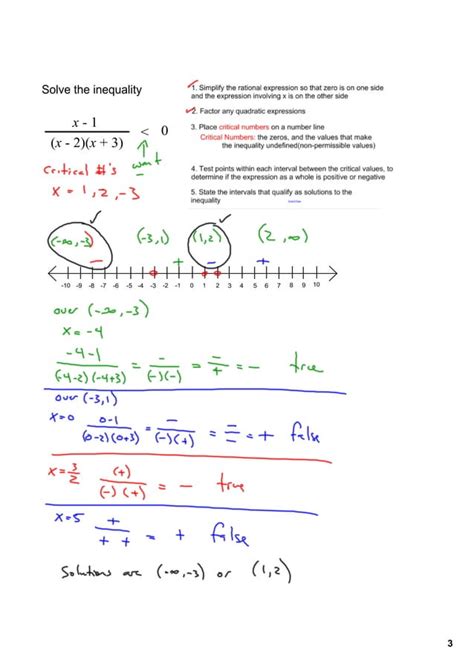 Solve the inequality
x - 1
(x - 2)(x + 3) < 0
want
-
Critical #'s
x = 1, 2, -3
1. Simplify the rational expression so that zero is on one side
and the expression involving x is on the other side
2. Factor any quadratic expressions
3. Place critical numbers on a number line
Critical Numbers: the zeros, and the values that make
the inequality undefined(non-permissible values)
4. Test points within each interval between the critical values, to
determine if the expression as a whole is positive or negative
5. State the intervals that qualify as solutions to the
inequality
(-∞,-3) (-3,1) (1,2) (2,∞)
- + - +
-10 -9 -8 -7 -6 -5 -4 -3 -2 -1 0 1 2 3 4 5 6 7 8 9 10
over (-∞,-3)
x = -4
-4-1
(-4-2)(-4+3) = -/(-)(-) = -/+ = - true
over (-3,1)
x=0 0-1
(0-2)(0+3) = -/(-)(+) = -/- = + false
x=3/2 (+)/(-)(+) = - true
x=5 +/+ + = + false
Solutions are (-∞,-3) or (1,2)
3